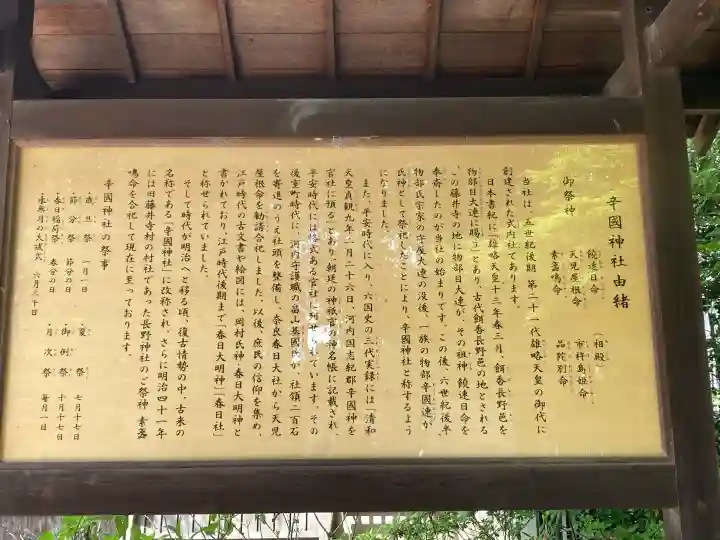 辛國神社由緒
御祭神
饒速日命
天児屋根命
素盞鳴命
(相殿)
市杵島姫命
品陀別命
当社は、五世紀後期 第二十一代雄略天皇の御代に
創建された式内社であります。
日本書紀に「雄略天皇十三年春三月、餌香長野邑を
物部目大連に賜う」とあり、古代餌香長野邑の地とされる
この藤井寺の地に物部目大連が、その祖神 饒速日命を
奉斎したのが当社の始まりです。この後、六世紀後半
物部氏宗家の守屋大連の没後、一族の物部辛國連が
氏神として祭祀したことにより、辛國神社と称するよう
になりました。
また、平安時代に入り、六国史の三代実録には「清和
天皇貞観九年二月二十六日、河内国志紀郡辛國神を
官社に預る」とあり、朝廷の神祇官の神名帳に記載され、
平安時代には格式ある官社に列せられています。その
後室町時代に、河内守護職の畠山基國氏が、社領二百石
を寄進のうえ社頭を整備し、奈良春日大社から天児
屋根命を勧請合祀しました。以後、庶民の信仰を集め、
江戸時代の古文書や絵図には、岡村氏神 春日大明神と
書かれており、江戸時代後期まで「春日大明神」「春日社」
と称せられていました。
そして時代が明治へと移る頃、復古情勢の中、古来の
名称である「辛國神社」に改称され、さらに明治四十一年
には旧藤井寺村の村社であった長野神社のご祭神 素盞
鳴命を合祀して現在に至っております。
辛國神社の祭事
・歳旦祭 一月一日
・節分祭 節分の日
・春日稲荷祭 春分の日
・水無月の大祓式 六月三十日
・夏祭 七月十七日
・御例祭 十月十七日
・月次祭 毎月一日